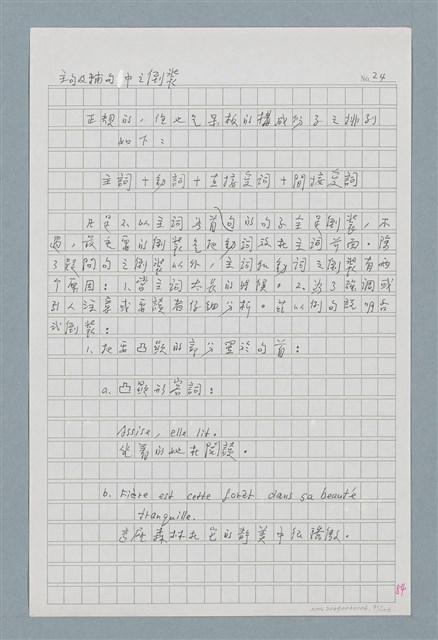 主句及補句中之倒裝
No. 24
正規的，但也是呆板的構成份子之排列
如下：
主詞＋動詞＋直接受詞＋間接受詞
凡是不以主詞為首句的句子全是倒裝，不
過，最主要的倒裝是把動詞放在主詞前面。除
了疑問句之倒裝以外，主詞和動詞之倒裝有兩
個原因：1.當主詞太長的時候。2.為了強調或
引人注意或要讀者仔細分析。茲以例句說明各
式倒裝：
1.把要凸顯的部分置於句首：
a.凸顯形容詞：
Assise, elle lit.
坐著的她在閱讀。
b. Fière est cette forêt dans sa beauté
tranquille.
這座森林在它的靜美中很驕傲。
84